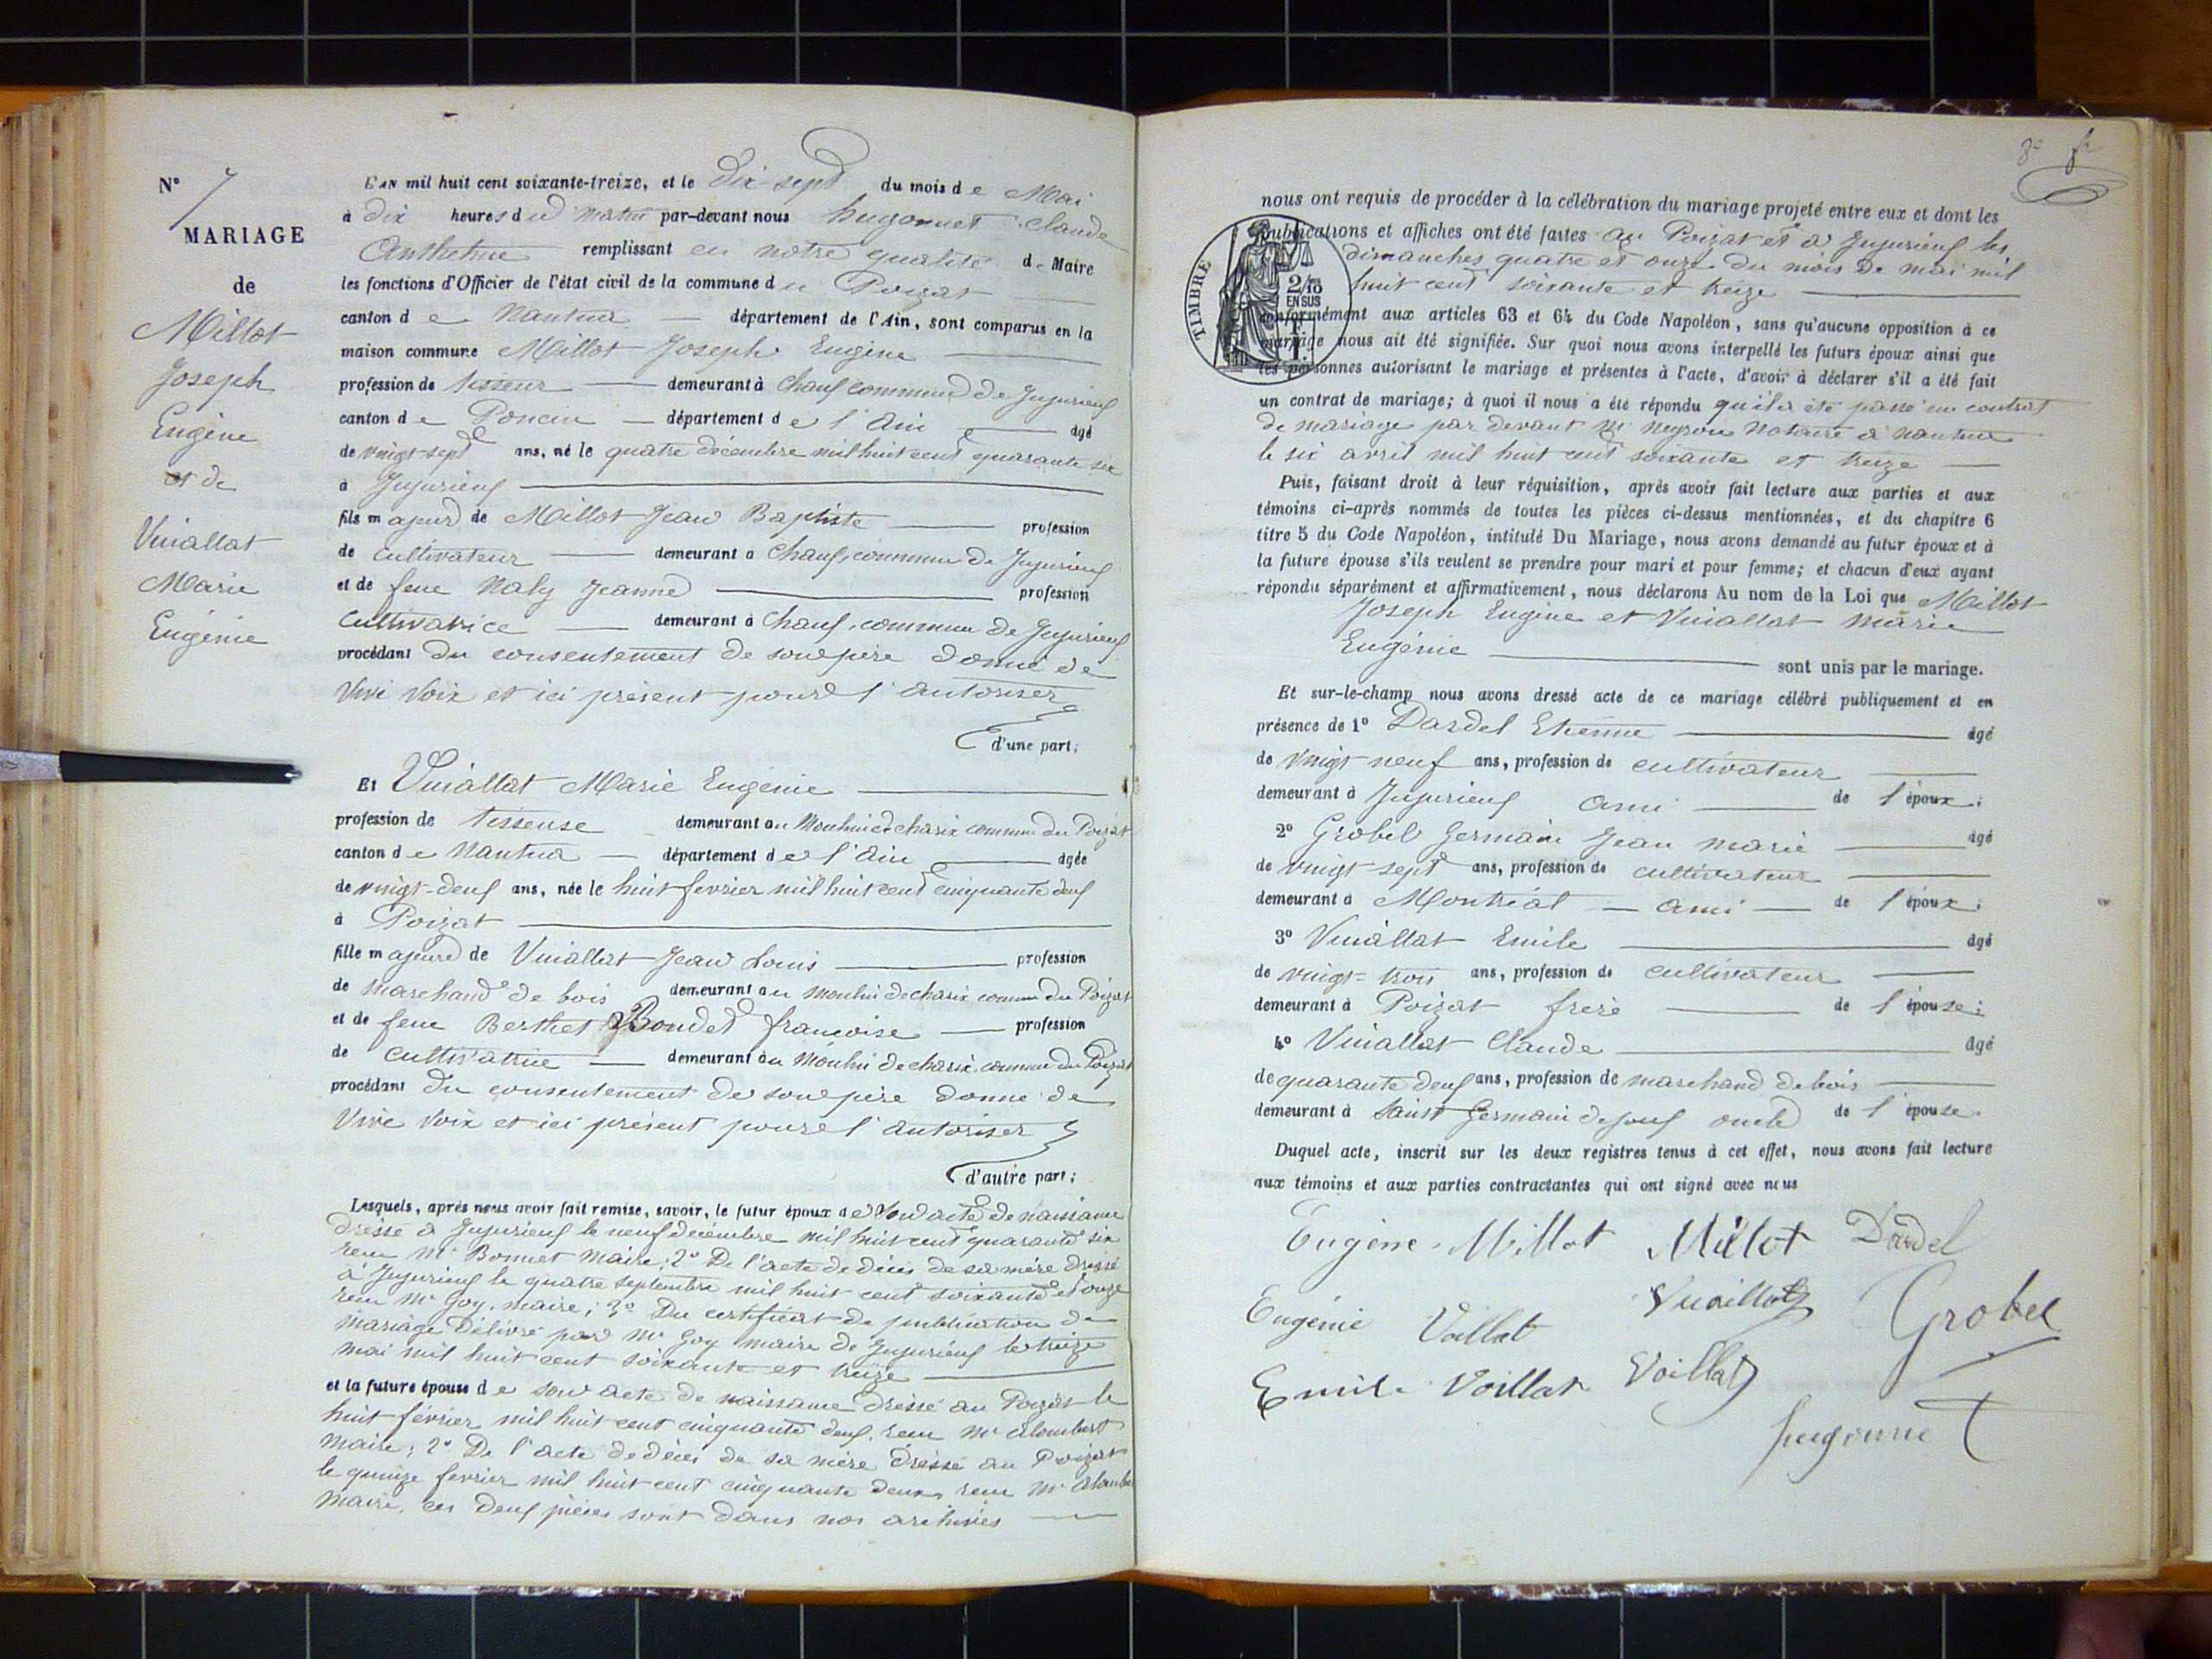 N° 7
MARIAGE
de
Millot
Joseph
Eugène
et de
Vuiallat
Marie
Eugénie
L'AN mil huit cent soixante-treize, et le Dix-sept du mois de Mai
à dix heures du matin par-devant nous hugonnet Claude
Anthelme remplissant en notre qualité de Maire
les fonctions d'Officier de l'état civil de la commune du Poizat
canton de Nantua département de l'Ain, sont comparus en la
maison commune Millot Joseph Eugène
profession de tisseur demeurant à Chaux commune de Jujurieux
canton de Poncin département de l'Ain âgé
de vingt-sept ans, né le quatre décembre mil huit cent quarante six
à Jujurieux
fils majeur de Millot Jean Baptiste profession
de cultivateur demeurant à Chaux, commune de Jujurieux
et de feue Naly Jeanne profession
cultivatrice demeurant à Chaux, commune de Jujurieux
procédant du consentement de son père donné de
vive voix et ici présent pour l'autoriser
d'une part;
Et Vuiallat Marie Eugénie
profession de tisseuse demeurant au Moulin de charix commune du Poizat
canton de Nantua département de l'Ain âgée
de vingt-deux ans, née le huit fevrier mil huit cent cinquante deux
à Poizat
fille majeure de Vuiallat Jean Louis profession
de marchand de bois demeurant au moulin de charix commune du Poizat
et de feue Berthet Bondet françoise profession
de cultivatrice demeurant au Moulin de charix commune du Poizat
procédant du consentement de son père donné de
vive voix et ici présent pour l'autoriser
d'autre part;
Lesquels, après nous avoir fait remise, savoir, le futur époux de son acte de naissance
dressé à Jujurieux le neuf décembre mil huit cent quarante six
reçu Mr Bonnet Maire; 2° De l'acte de décès de sa mère dressé
à Jujurieux le quatre septembre mil huit cent soixante et onze
reçu Mr Goy, maire; 3° Du certificat de publication de
mariage délivré par Mr Goy maire de Jujurieux le treize
mai mil huit cent soixante et treize
et la future épouse de son acte de naissance dressé au Poizat le
huit février mil huit cent cinquante deux, reçu Mr alombert
maire; 2° De l'acte de décès de sa mère dressé au Poizat
le quinze fevrier mil huit cent cinquante deux, reçu Mr
maire, ces deux pièces sont dans nos archives
nous ont requis de procéder à la célébration du mariage projeté entre eux et dont les
publications et affiches ont été faites au Poizat et à Jujurieux les
dimanches quatre et onze du mois de mai mil
huit cent soixante et treize
TIMBRE
2/10
EN SUS
conformément aux articles 63 et 64 du Code Napoléon, sans qu'aucune opposition à ce
mariage nous ait été signifiée. Sur quoi nous avons interpellé les futurs époux ainsi que
les personnes autorisant le mariage et présentes à l'acte, d'avoir à déclarer s'il a été fait
un contrat de mariage; à quoi il nous a été répondu qu'il a été passé un contrat
de mariage par devant Mr negroin Notaire à nantua
le six avril mil huit cent soixante et treize
Puis, faisant droit à leur réquisition, après avoir fait lecture aux parties et aux
témoins ci-après nommés de toutes les pièces ci-dessus mentionnées, et du chapitre 6
titre 5 du Code Napoléon, intitulé Du Mariage, nous avons demandé au futur époux et à
la future épouse s'ils veulent se prendre pour mari et pour femme; et chacun d'eux ayant
répondu séparément et affirmativement, nous déclarons Au nom de la Loi que Millot
Joseph Eugène et Vuiallat Marie
Eugénie sont unis par le mariage.
Et sur-le-champ nous avons dressé acte de ce mariage célébré publiquement et en
présence de 1° Dardel Etienne âgé
de vingt neuf ans, profession de cultivateur
demeurant à Jujurieux ami de l'époux;
2° Grobel Germain Jean marie âgé
de vingt sept ans, profession de cultivateur
demeurant à Montréal ami de l'époux;
3° Vuiallat Emile âgé
de vingt-trois ans, profession de cultivateur
demeurant à Poizat frère de l'épouse;
4° Vuiallat Claude âgé
de quarante deux ans, profession de marchand de bois
demeurant à Saint Germain de joux oncle de l'épouse.
Duquel acte, inscrit sur les deux registres tenus à cet effet, nous avons fait lecture
aux témoins et aux parties contractantes qui ont signé avec nous
Eugène Millot Millot Dardel
Eugénie Vallat Vuaillat Grobel
Emile Voillat Voillat
hugonnet